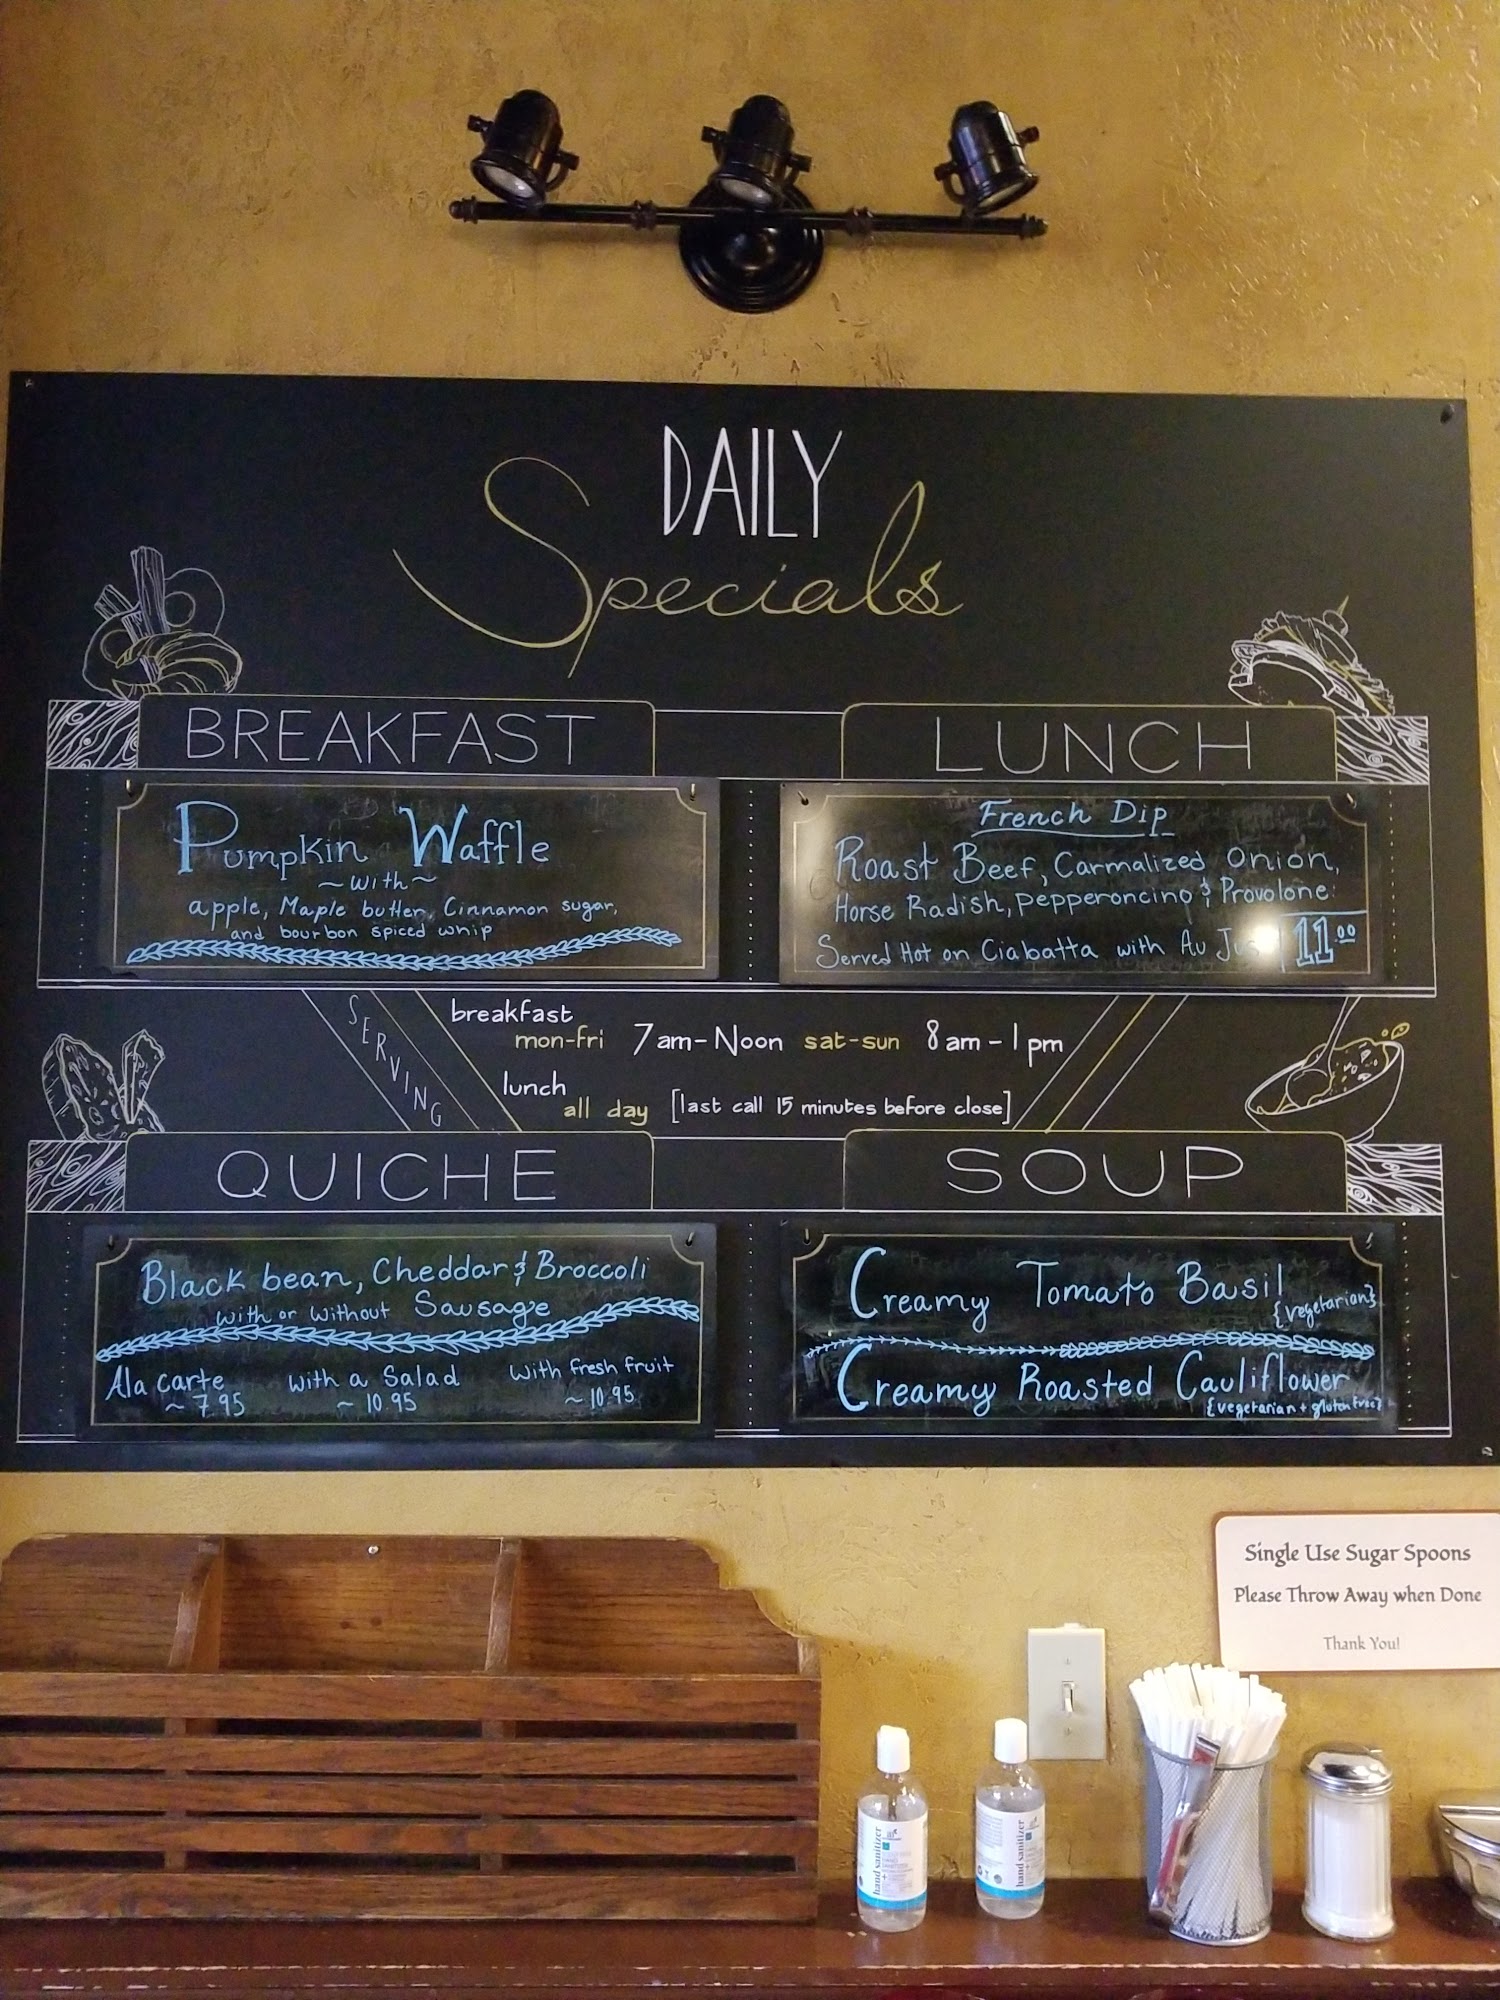 DAILY
Specials
BREAKFAST
Pumpkin Waffle
~with~
apple, Maple butter, Cinnamon sugar,
and bourbon spiced whip
LUNCH
French Dip
Roast Beef, Carmalized onion,
Horse Radish, pepperoncino & Provolone.
Served Hot on Ciabatta with Au Jus
11.00
SERVING
breakfast
mon-fri 7am-Noon sat-sun 8am-1pm
lunch
all day [last call 15 minutes before close]
QUICHE
Black bean, Cheddar & Broccoli
with or without Sausage
Ala carte
~ 7.95
with a Salad
~ 10.95
With fresh fruit
~ 10.95
SOUP
Creamy Tomato Basil
{vegetarian}
Creamy Roasted Cauliflower
{vegetarian + gluten free}
Single Use Sugar Spoons
Please Throw Away when Done
Thank You!
hand sanitizer
hand sanitizer